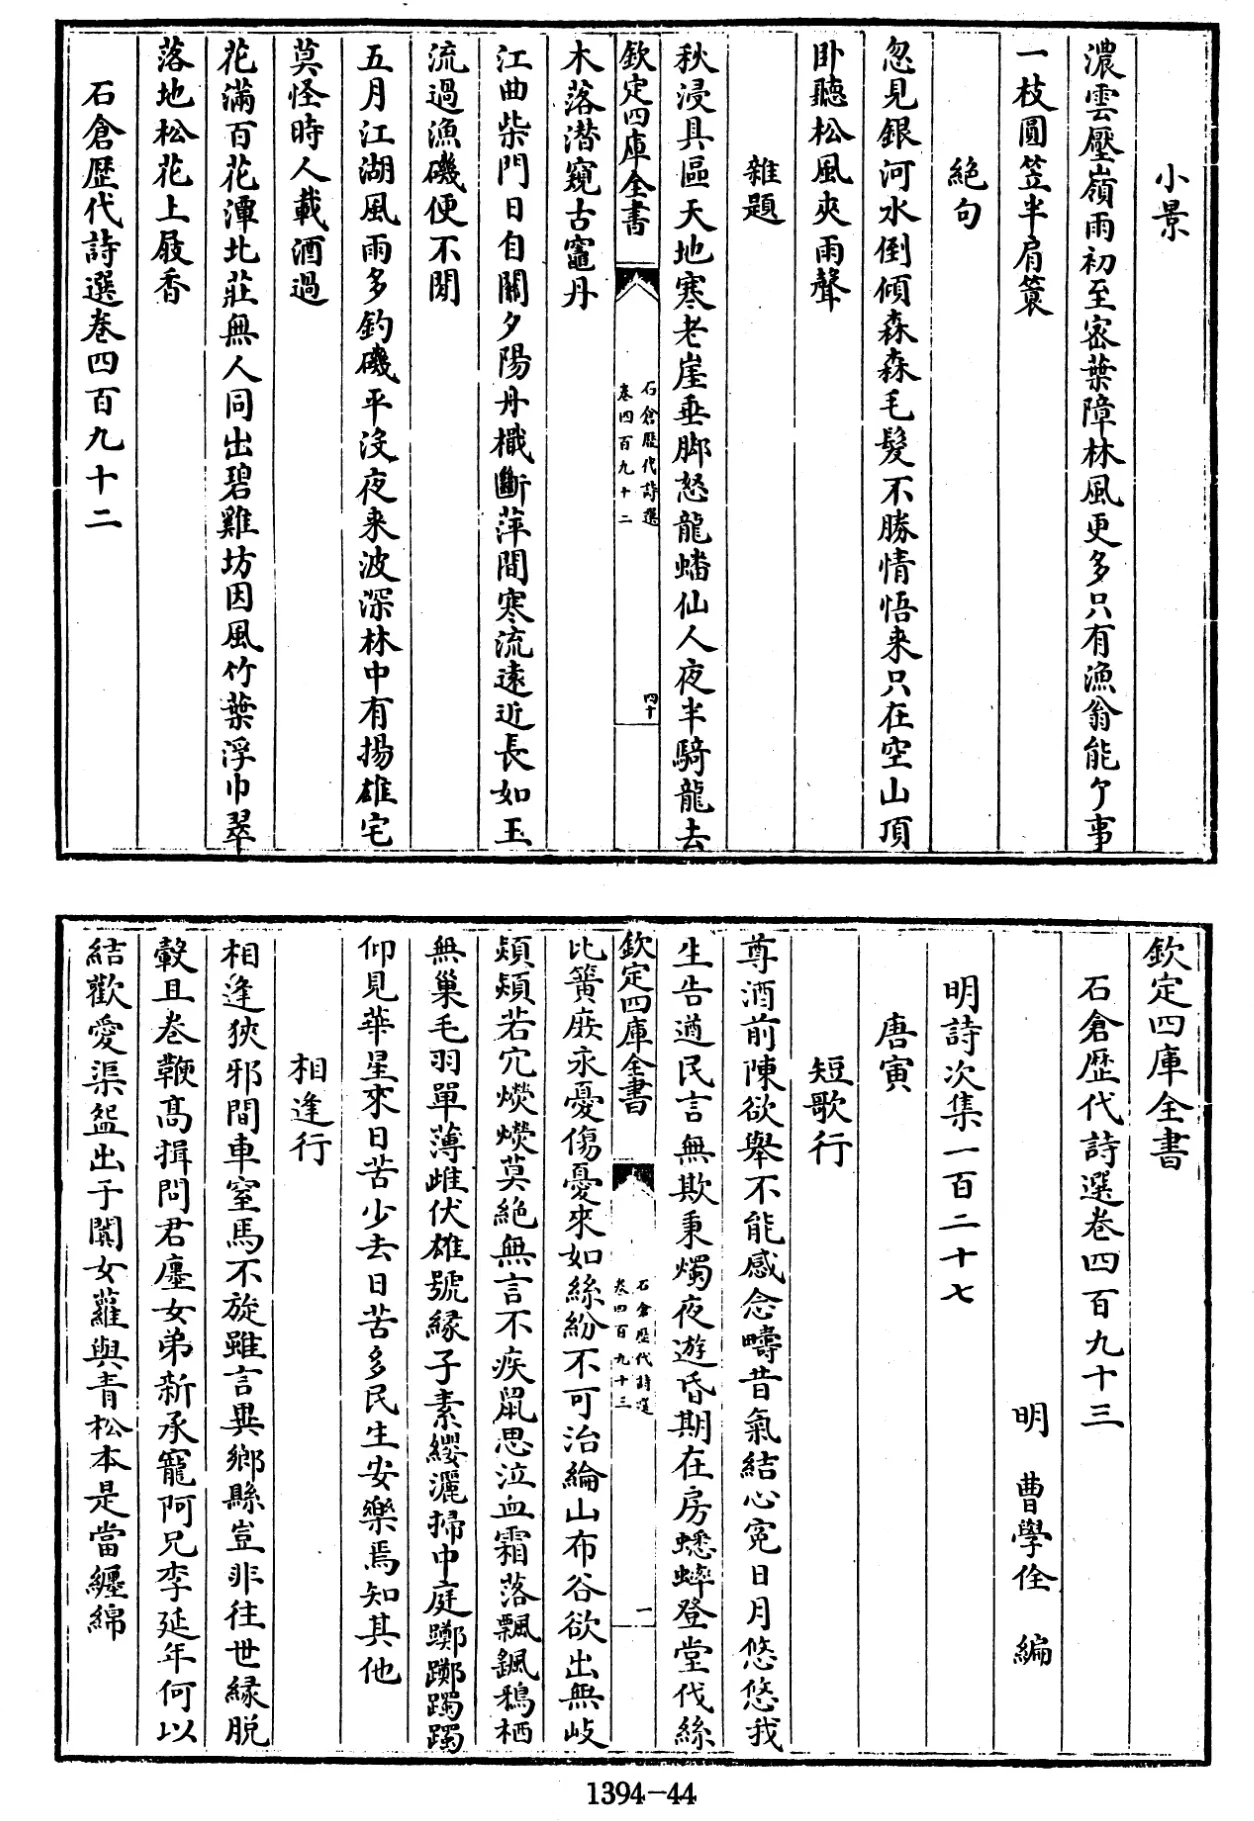 小景
濃雲壓嶺雨初至密葉障林風更多只有漁翁能了事
一枝圓笠半肩簑
絕句
忽見銀河水倒傾森森毛髮不勝情悟来只在空山頂
卧聽松風夾雨聲
雜題
秋浸具區天地寒老崖垂脚怒龍蟠仙人夜半騎龍去
欽定四庫全書
石倉歷代詩選
卷四百九十二
四十
木落潛窺古竈丹
江曲柴門日自關夕陽丹檝斷萍間寒流遠近長如玉
流過漁磯便不閒
五月江湖風雨多釣磯平沒夜来波深林中有揚雄宅
莫怪時人載酒過
花滿百花潭北莊無人同出碧雞坊因風竹葉浮巾翠
落地松花上屐香
石倉歷代詩選卷四百九十二
欽定四庫全書
石倉歷代詩選卷四百九十三
明 曹學佺 編
明詩次集一百二十七
唐寅
短歌行
尊酒前陳欲舉不能感念疇昔氣結心寃日月悠悠我
生告遒民言無欺秉燭夜遊昏期在房蟋蟀登堂伐絲
欽定四庫全書
石倉歷代詩選
卷四百九十三
一
比簧庶永憂傷憂來如絲紛不可治綸山布谷欲出無岐
熲熲若穴熒熒莫絕無言不疾鼠思泣血霜落飄飄鵶栖
無巢毛羽單薄雌伏雄號緣子素纓灑掃中庭躑躑躅躅
仰見華星來日苦少去日苦多民生安樂焉知其他
相逢行
相逢狹邪間車窒馬不旋雖言異鄉縣豈非往世緣脱
轂且卷鞭髙揖問君廛女弟新承寵阿兄李延年何以
結歡愛渠盌出于闐女蘿與青松本是當纏綿
1394-44